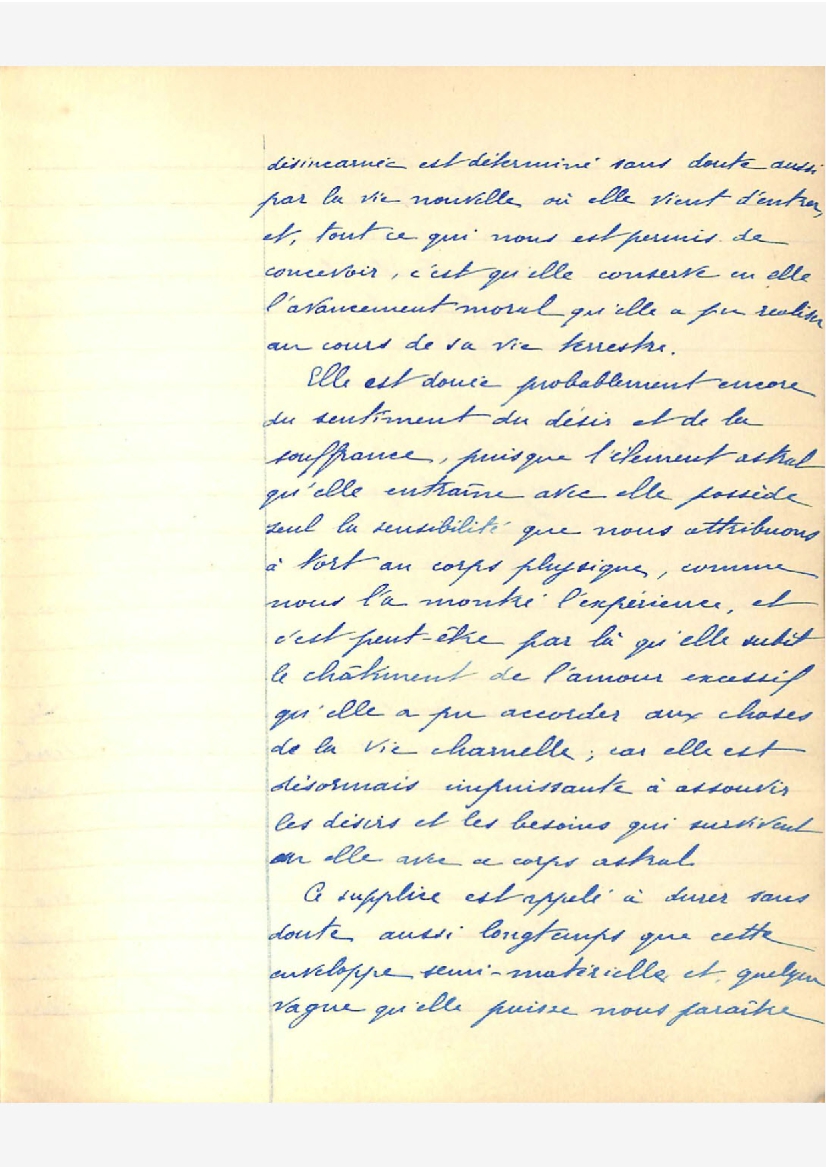 désincarnée est déterminé sans doute aussi
par la vie nouvelle où elle vient d'entrer,
et, tout ce qui nous est permis de
concevoir, c'est qu'elle conserve en elle
l'avancement moral qu'elle a pu réaliser
au cours de sa vie terrestre.
Elle est douée probablement encore
du sentiment du désir et de la
souffrance, puisque l'élément astral
qu'elle entraîne avec elle possède
seul la sensibilité que nous attribuons
à tort au corps physique, comme
nous l'a montré l'expérience, et
c'est peut-être par là qu'elle subit
le châtiment de l'amour excessif
qu'elle a pu accorder aux choses
de la vie charnelle ; car elle est
désormais impuissante à assouvir
les désirs et les besoins qui survivent
en elle avec ce corps astral.
Ce supplice est appelé à durer sans
doute aussi longtemps que cette
enveloppe semi-matérielle et, quelque
vague qu'elle puisse nous paraître